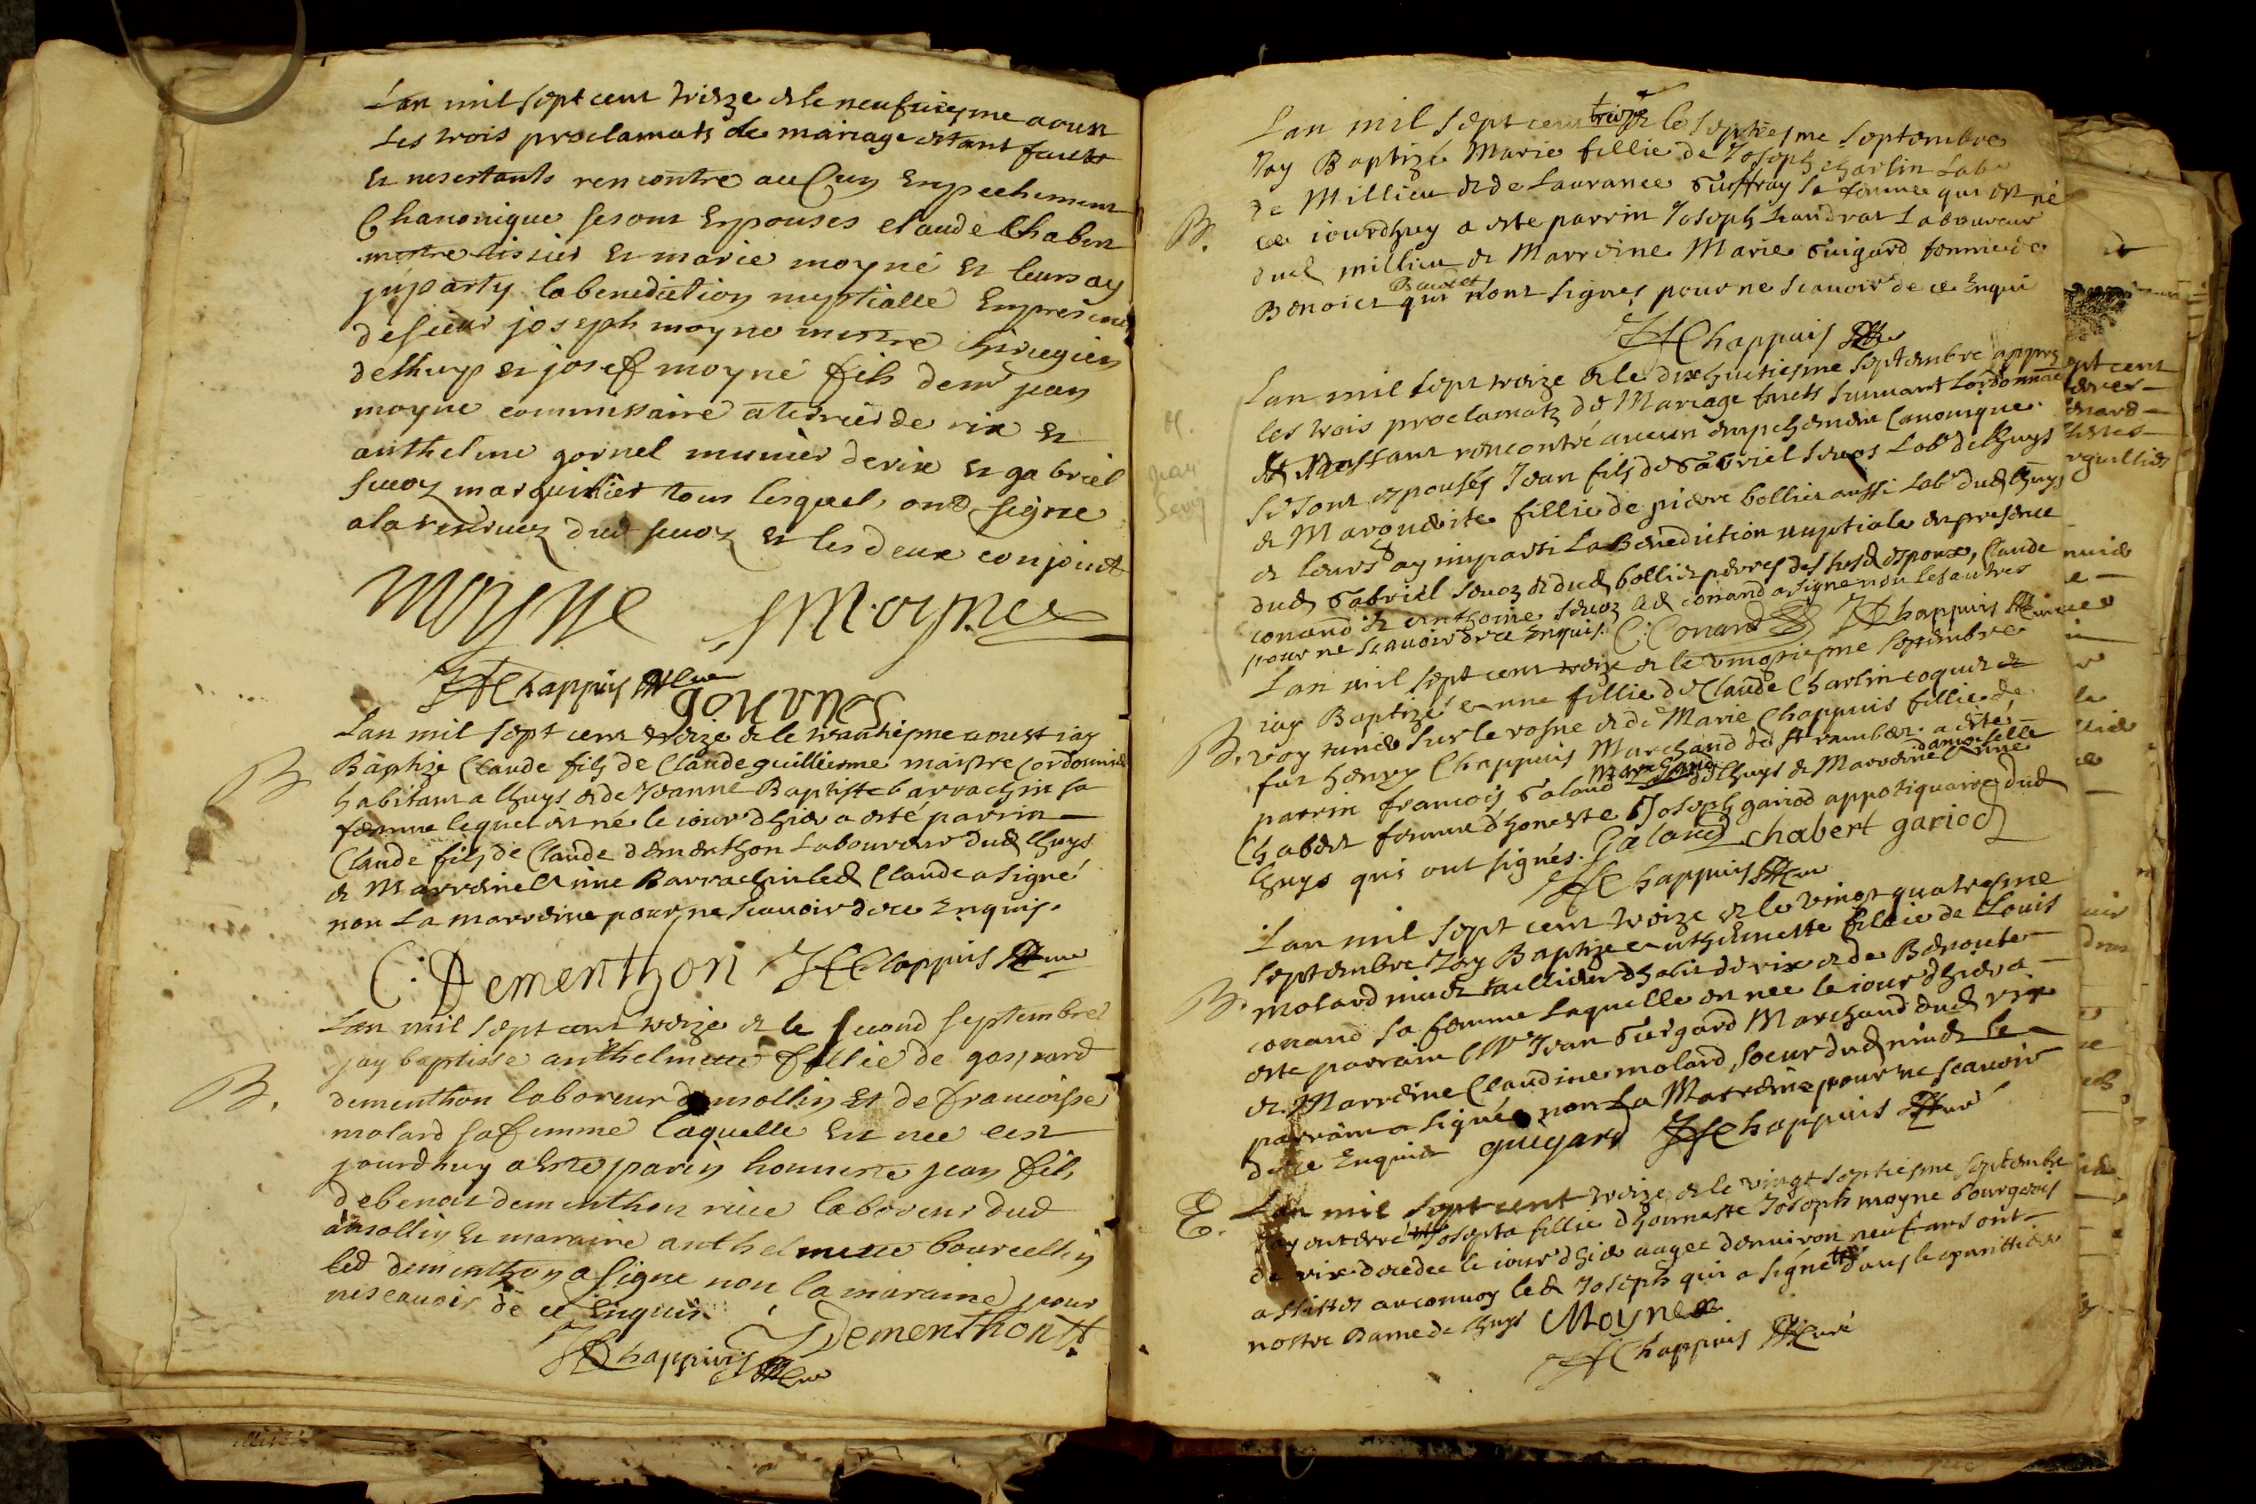 Lan mil sept cent treize & le neufviesme aoust
Les trois proclamats de mariage estant faicts
Et nesestants rencontre aucun Enpechement
Chanonique sesont Enpouses claude Chabert
mestre tissier Et marie moyne Et leurs ay
jnparty la benediction nuptialle Enpresence
de sieur joseph moyne mestre chirugien
delhuys Et josef moyne fils de mr jean
moyne commissaire a terrier de rix Et
anthelme gornel munier de rix Et gabriel
sevoz marguillier tous lesquels ont signe
a la reserve dud sevoz Et les deux conjoints
moyne JMoyne
Chappuis Cure
gournel
Lan mil sept cent treize & le trantiesme aoust iay
B Baptizé Claude fils de Claude guillierme maistre Cordonnier
habitant a lhuys & de Jeanne Baptiste barrachin sa
femme lequel est né le iour d'hier a esté parrin
Claude fils de Claude dementhon Laboureur dud lhuys
& Marreine Anne Barrachin led Claude a signé
non La marreine pour ne scavoir de ce Enquis.
C: Dementhon Chappuis Cure
Lan mil sept cent treize & le second septembre
jay baptisse anthelmette fillie de gaspard
B. dementhon laboreur dansollin Et de francoisse
molard sa femme laquelle Est nee cest
jourdhuy a Este parin honneste jean fils
de benoit dementhon laboreur dud
ansollin Et maraine anthelmette bourcellin
led dementhon a signe non la maraine pour
ne scavoir de ce Enquis
JDementhon
Chappuis Cure
Lan mil sept cent treize & le septiesme septembre
Jay Baptizé Marie fillie de Joseph charlin Labr
de Millieu & de Laurance Guiffray sa femme qui est né
B. ce iourdhuy a este parrin Joseph Laboureur
dud millieu & Marreine Marie Guigard femme de
Benoict qui n'ont signes pour ne scavoir de ce Enqui
Chappuis Cure
M. Lan mil sept treize & le dixhuitiesme septembre appres
les trois proclamatz de Mariage faicts suivant Lordonnance
& ne sestant rencontré aucun empechement Canonique
se sont espousés Jean fils de Gabriel sevos Labr de lhuys
& Marguerite fillie de pierre bollier aussi Labr dud lhuys
& leurs ay imparti La Benediction nuptiale enpresence
dud Gabriel sevoz & dud bollier peres des susd espoux, Claude
conand & anthoine sevoz led conand a signe non les autres
pour ne scavoir de ce enquis. C: Conand Chappuis Cure
Lan mil sept cent treize & le vingtiesme septembre
iay Baptizé anne fillie de Claude Charlin coquet &
B. sur le rosne & de Marie Chappuis fillie de
fut henry Chappuis Marchand de st rambert. a este
parrin francois Galand Marchand de lhuys & Marreine damoiselle anne
Chabert femme d'honeste Joseph gariod appotiquaire dud
lhuys qui ont signés. Galand chabert gariod
Chappuis Cure
Lan mil sept cent treize & le vingt quatresme
septembre Jay Baptize anthelmette fillie de Louis
B. molard taillieur d'habit de rix & de Benoite
conand sa femme Laquelle est nee le iour d'hier a
este parrain Jean Guigard Marchand dud rix
& Marreine Claudine molard soeur dud le
parrain a signé non La Marreine pour ne scavoir
de ce Enquise guigard Chappuis Cure
E. Lan mil sept cent treize & le vingt septiesme septembre
iay enterré Josepta fillie d'honneste Joseph moyne bourgeois
de rix decedee le iour d'hier aagee denviron neuf ans ont
assistes au convoy led Joseph qui a signé dans le
nostre Dame de lhuys Moyne
Chappuis Curé